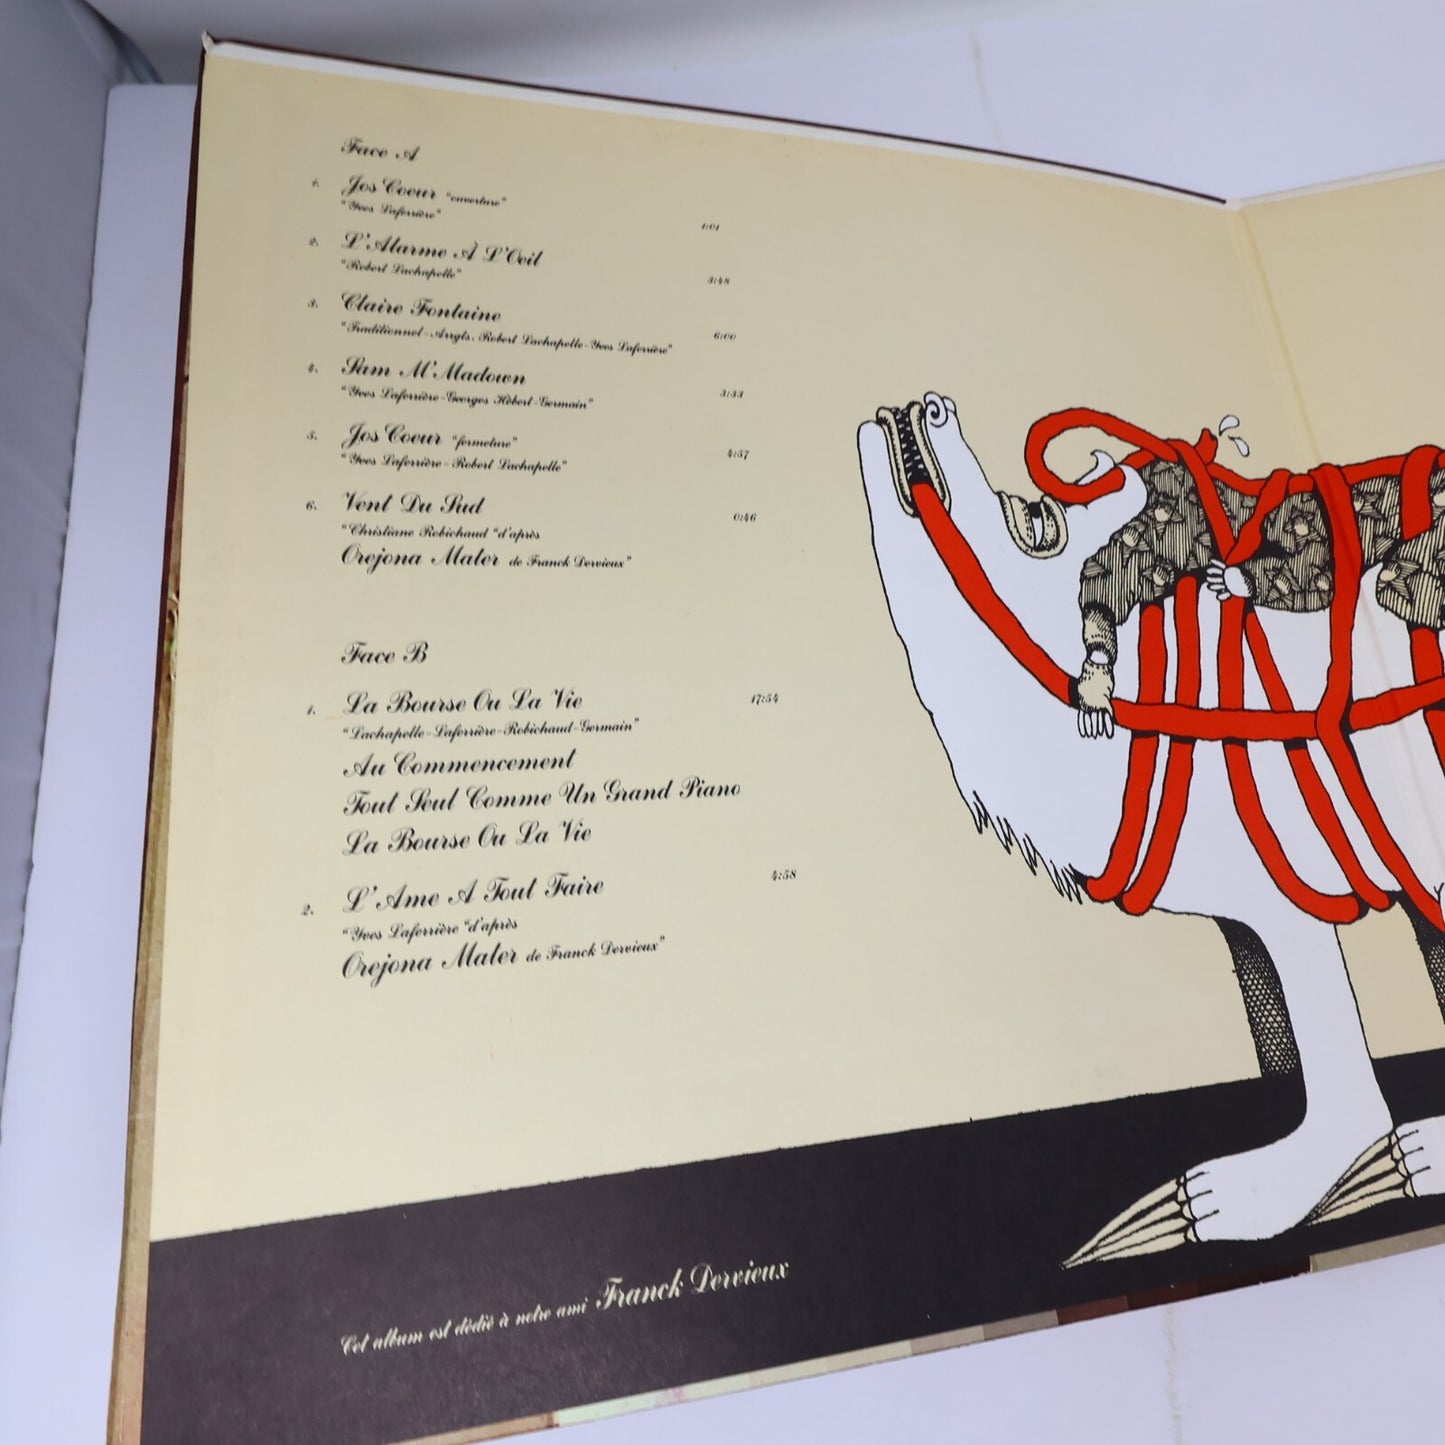 Face A
1. Jos Coeur "ouverture"
"Yves Laferrière" 1:01
2. L'Alarme À L'Oeil
"Robert Lachapelle" 3:48
3. Claire Fontaine
"Traditionnel-Arrgts. Robert Lachapelle-Yves Laferrière" 6:00
4. Sam M'Madown
"Yves Laferrière-Georges Hébert-Germain" 3:33
5. Jos Coeur "fermeture"
"Yves Laferrière-Robert Lachapelle" 4:57
6. Vent Du Sud 0:46
"Christiane Robichaud "d'après
Orejona Mater de Franck Dervieux"
Face B
1. La Bourse Ou La Vie 17:54
"Lachapelle-Laferrière-Robichaud-Germain"
Au Commencement
Tout Seul Comme Un Grand Piano
La Bourse Ou La Vie
2. L'Ame A Tout Faire 4:58
"Yves Laferrière "d'après
Orejona Mater de Franck Dervieux"
Cet album est dédié à notre ami Franck Dervieux